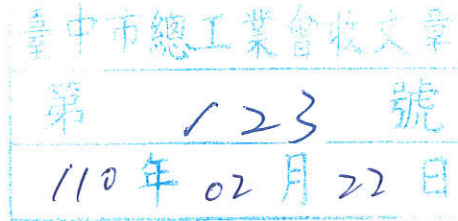 臺中市總工業會收文章
第 123 號
110年02月22日